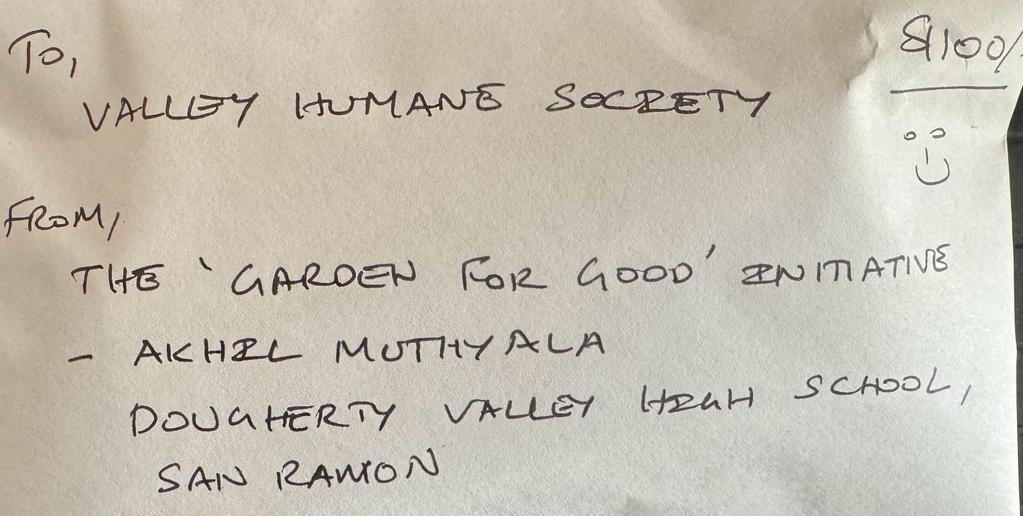 To,
$100/-
VALLEY HUMANE SOCIETY
FROM,
THE 'GARDEN FOR GOOD' INITIATIVE
- AKHIL MUTHYALA
DOUGHERTY VALLEY HIGH SCHOOL,
SAN RAMON